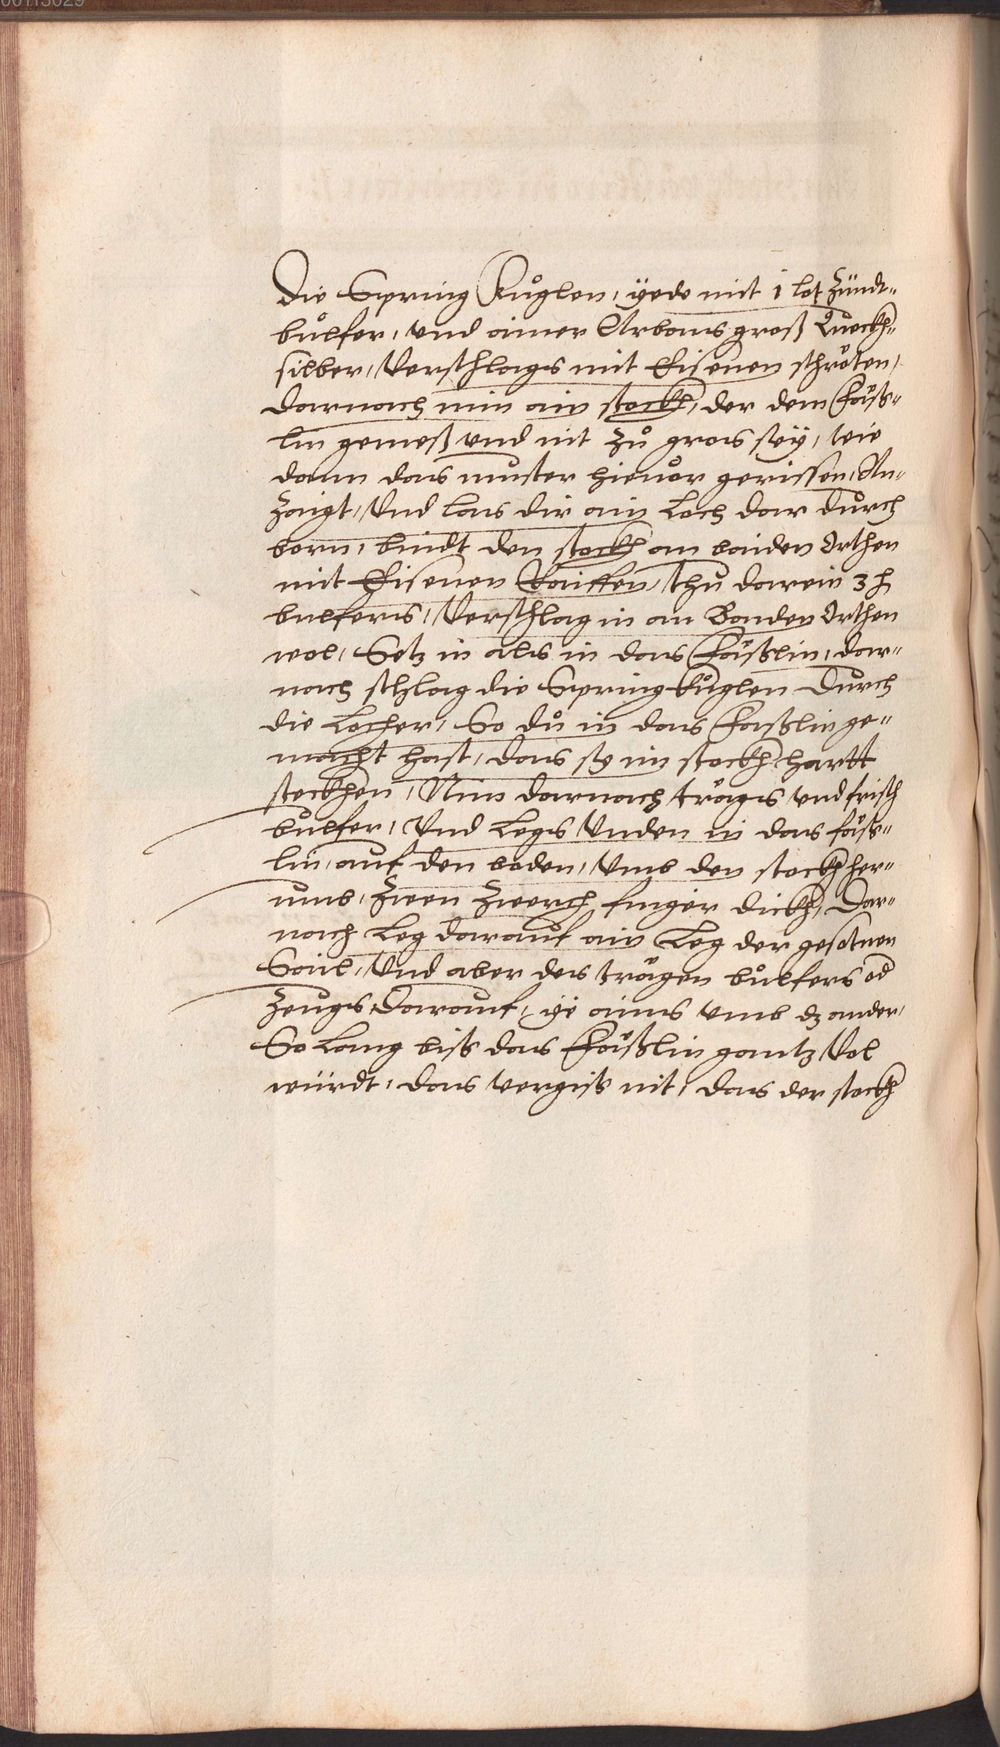 Die Spring Kůglen, yede mit 1 lot Zündt-
bůlfer, vnd ainer Arbais gros Queckh-
silber, Verschlags mit Eisenen schröten,
darnach nim ain stockh, der dem Fäss-
lin gemeß vnd nit zů gros seÿ, wie
dann das muster hieuor gerissen, An-
zaigt, Vnd las dir ain Loch dar dürch
born, bindt den stockh an baiden Orthen
mit Eisenen Raiffen, thů darein 3 ℔
bulfers, Verschlag in an Banden Orthen
wol, Setz in als in das Fäßlin, dar-
nach schlag die Spring kůglen dürch
die Locher, So dů in das Faßlin ge-
macht hast, das sy im stockh hartt
steckhen, Nim darnach trägs vnd frisch
bůlfer, Vnd Legs Vnden in das fäss-
lin, auf den boden, vmb den stockh her-
umb, Zwen Zwerch finger dickh, Dar-
nach Leg darauf ain Leg der gesotnen
Sail, Vnd aber des trägen bůlfers od
Zeugs darauf, ye ains vmb dz ander,
So Lang biss das Fäßlin gantz Vol
würdt, das vergiss nit, das der stockh